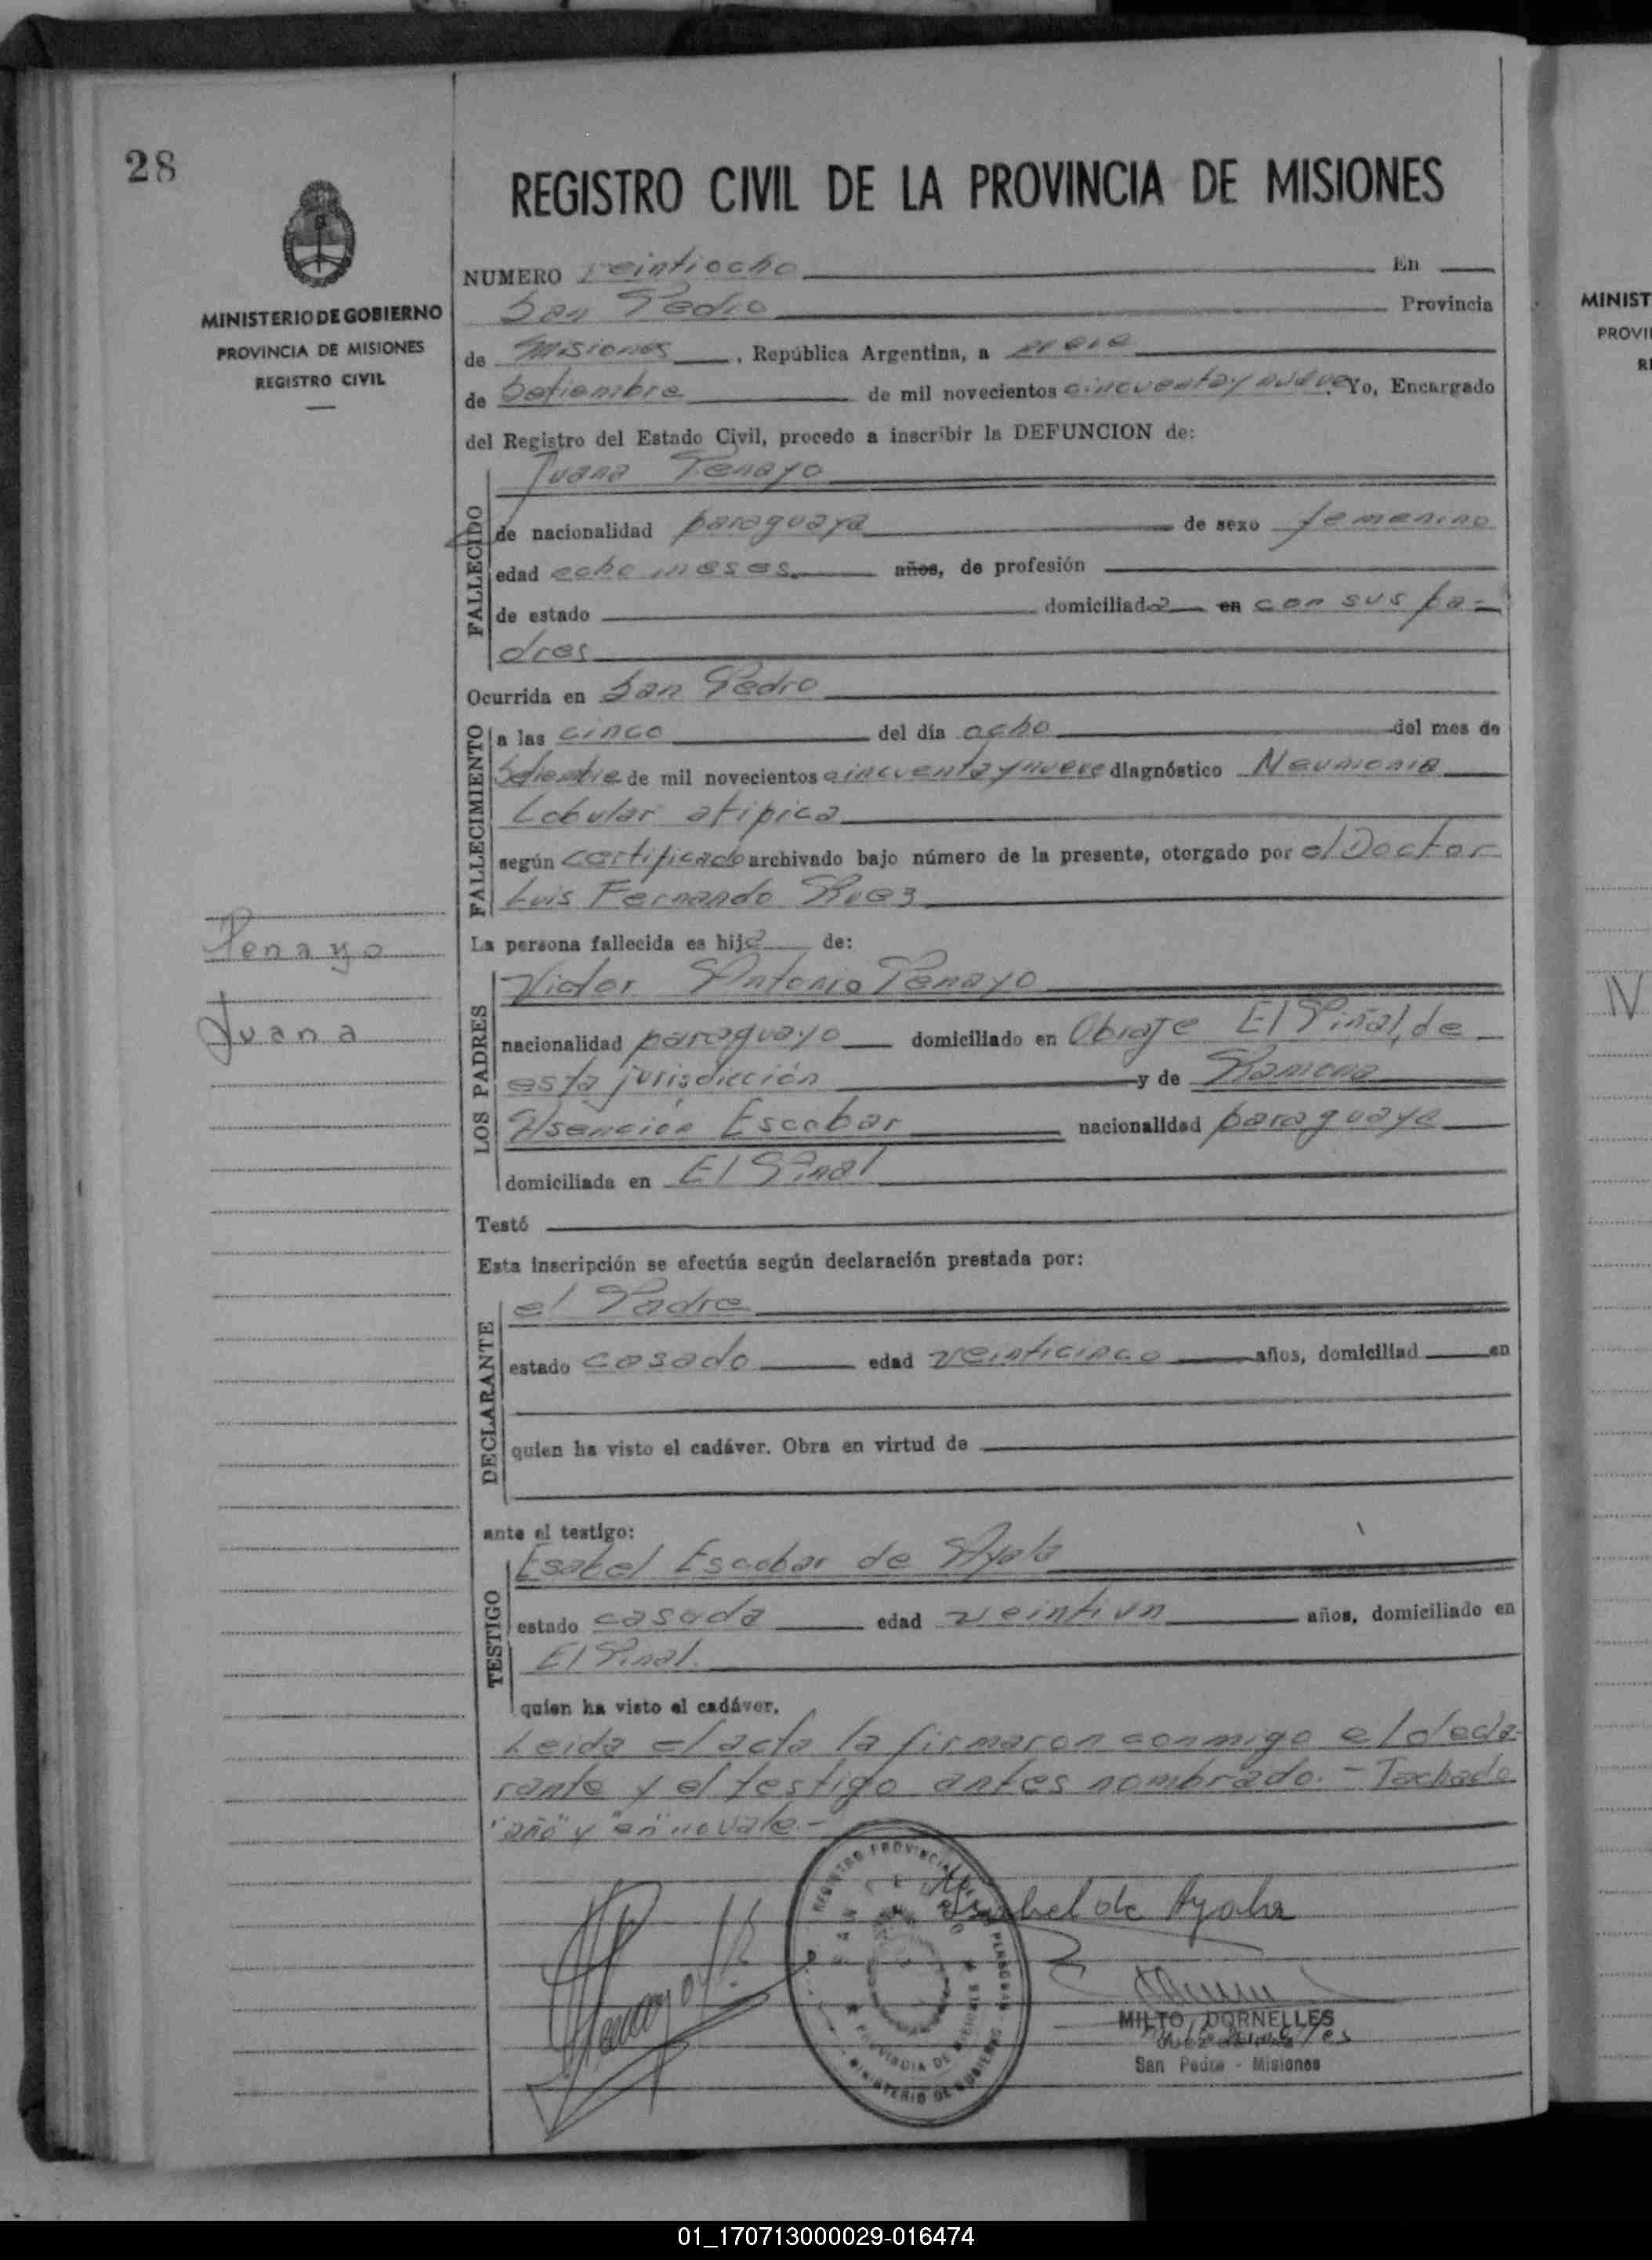 28
REGISTRO CIVIL DE LA PROVINCIA DE MISIONES
MINISTERIO DE GOBIERNO
PROVINCIA DE MISIONES
REGISTRO CIVIL
NUMERO veintiocho En
San Pedro Provincia
de Misiones, República Argentina, a
de Setiembre de mil novecientos cincuenta y nueve Yo, Encargado
del Registro del Estado Civil, procedo a inscribir la DEFUNCION de:
Juana Penayo
FALLECIDO
de nacionalidad paraguaya de sexo femenino
edad ocho meses años, de profesión
de estado domiciliada en con sus pa-
dres
Ocurrida en San Pedro
FALLECIMIENTO
a las cinco del día ocho del mes de
Setiembre de mil novecientos cincuenta y nueve diagnóstico Neumonia
Lobular atipica
según certificado archivado bajo número de la presente, otorgado por el Doctor
Luis Fernando
La persona fallecida es hija de:
Penayo
Juana
LOS PADRES
Victor Antonio Penayo
nacionalidad paraguayo domiciliado en Obraje El Piñal, de
esta jurisdicción y de Ramona
Asención Escobar nacionalidad paraguaya
domiciliada en El Pinal
Testó
Esta inscripción se efectúa según declaración prestada por:
DECLARANTE
el Padre
estado casado edad veinticinco años, domiciliad en
quien ha visto el cadáver. Obra en virtud de
ante el testigo:
TESTIGO
Esabel Escobar de Ayala
estado casada edad veintiun años, domiciliado en
El Pinal.
quien ha visto el cadáver.
Leida el acta la firmaron conmigo el decla-
rante y el testigo antes nombrado.- Tachado
"año" y "en" no vale.-
REGISTRO PROVINCIAL DE PERSONAS
PROVINCIA DE MISIONES
MINISTERIO DE GOBIERNO
Isabel de Ayala
Penayo
MILTO DORNELLES
San Pedro - Misiones
MINIST
PROVI
RE
01_170713000029-016474